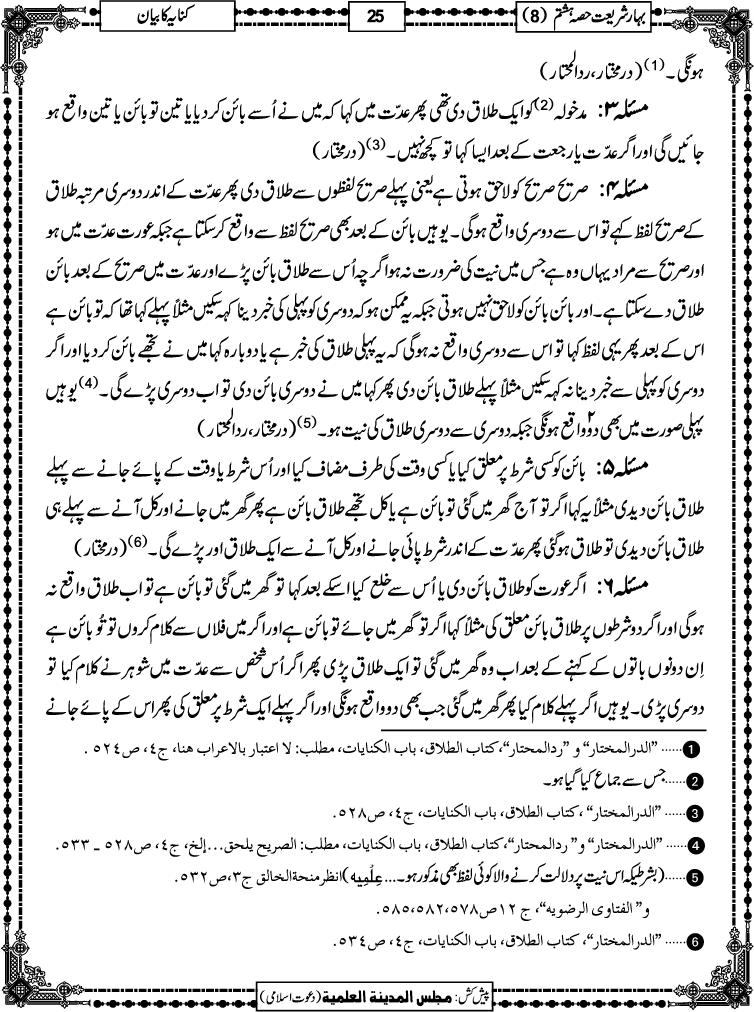 بہارِ شریعت حصہ ہشتم (8)
25
کنایہ کا بیان
ہونگی۔(1) (درمختار،ردالمحتار)
مسئلہ ۳: مدخولہ(2) کو ایک طلاق دی تھی پھر عدّت میں کہا کہ میں نے اُسے بائن کردیا یا تین تو بائن یا تین واقع ہو
جائیں گی اور اگر عدّت یا رجعت کے بعد ایسا کہا تو کچھ نہیں۔(3) (درمختار)
مسئلہ ۴: صریح صریح کو لاحق ہوتی ہے یعنی پہلے صریح لفظوں سے طلاق دی پھر عدّت کے اندر دوسری مرتبہ طلاق
کے صریح لفظ کہے تو اس سے دوسری واقع ہوگی۔ یوہیں بائن کے بعد بھی صریح لفظ سے واقع کرسکتا ہے جبکہ عورت عدّت میں ہو
اور صریح سے مراد یہاں وہ ہے جس میں نیت کی ضرورت نہ ہو اگرچہ اُس سے طلاق بائن پڑے اور عدّت میں صریح کے بعد بائن
طلاق دے سکتا ہے۔ اور بائن بائن کو لاحق نہیں ہوتی جبکہ یہ ممکن ہو کہ دوسری کو پہلی کی خبر دینا کہہ سکیں مثلاً پہلے کہا تھا کہ تو بائن ہے
اس کے بعد پھر یہی لفظ کہا تو اس سے دوسری واقع نہ ہوگی کہ یہ پہلی طلاق کی خبر ہے یا دوبارہ کہا میں نے تجھے بائن کردیا اور اگر
دوسری کو پہلی سے خبر دینا نہ کہہ سکیں مثلاً پہلے طلاق بائن دی پھر کہا میں نے دوسری بائن دی تو اب دوسری پڑے گی۔(4) یوہیں
پہلی صورت میں بھی دو۲ واقع ہونگی جبکہ دوسری سے دوسری طلاق کی نیت ہو۔(5) (درمختار،ردالمحتار)
مسئلہ ۵: بائن کو کسی شرط پر معلق کیا یا کسی وقت کی طرف مضاف کیا اور اُس شرط یا وقت کے پائے جانے سے پہلے
طلاق بائن دیدی مثلاً یہ کہا اگر تو آج گھر میں گئی تو بائن ہے یا کل تجھے طلاق بائن ہے پھر گھر میں جانے اور کل آنے سے پہلے ہی
طلاق بائن دیدی تو طلاق ہوگئی پھر عدّت کے اندر شرط پائی جانے اور کل آنے سے ایک طلاق اور پڑے گی۔(6) (درمختار)
مسئلہ ۶: اگر عورت کو طلاق بائن دی یا اُس سے خلع کیا اسکے بعد کہا تو گھر میں گئی تو بائن ہے تو اب طلاق واقع نہ
ہوگی اور اگر دو شرطوں پر طلاق بائن معلق کی مثلاً کہا اگر تو گھر میں جائے تو بائن ہے اور اگر میں فلاں سے کلام کروں تو تُو بائن ہے
اِن دونوں باتوں کے کہنے کے بعد اب وہ گھر میں گئی تو ایک طلاق پڑی پھر اگر اُس شخص سے عدّت میں شوہر نے کلام کیا تو
دوسری پڑی۔ یوہیں اگر پہلے کلام کیا پھر گھر میں گئی جب بھی دو واقع ہونگی اور اگر پہلے ایک شرط پر معلق کی پھر اس کے پائے جانے
1 ......”الدرالمختار“ و ”ردالمحتار“،کتاب الطلاق، باب الکنایات، مطلب: لا اعتبار بالاعراب هنا، ج٤، ص٥٢٤ .
2 ......جس سے جماع کیا گیا ہو۔
3 ......”الدرالمختار“ ،کتاب الطلاق، باب الکنایات، ج٤، ص٥٢٨.
4 ......”الدرالمختار“ و” ردالمحتار“،کتاب الطلاق، باب الکنایات، مطلب: الصریح یلحق...إلخ، ج٤، ص٥٢٨ ـ ٥٣٣.
5 ......(بشرطیکہ اس نیت پر دلالت کرنے والا کوئی لفظ بھی مذکور ہو۔... عِلْمِیه) انظر منحة الخالق ج٣،ص٥٣٢.
و” الفتاوى الرضویه“، ج ١٢ص٥٧٨،٥٨٢،٥٨٥.
6 ......”الدرالمختار“، کتاب الطلاق، باب الکنایات، ج٤، ص٥٣٤.
پیش کش: مجلس المدینة العلمیة (دعوت اسلامی)